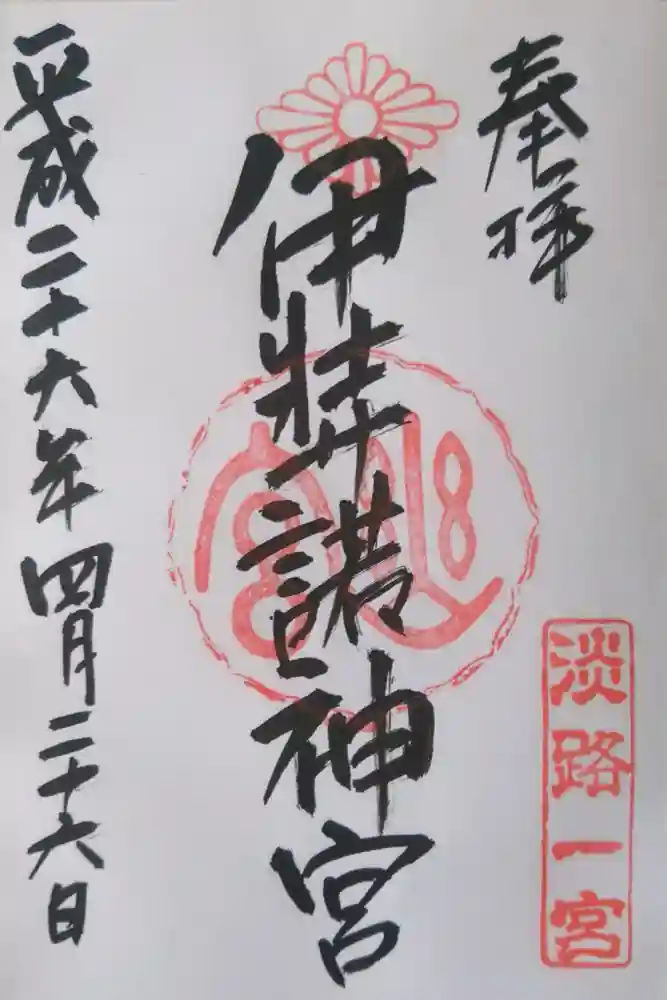 奉拝
淡路一宮
伊弉諾神宮
平成二十六年四月二十六日